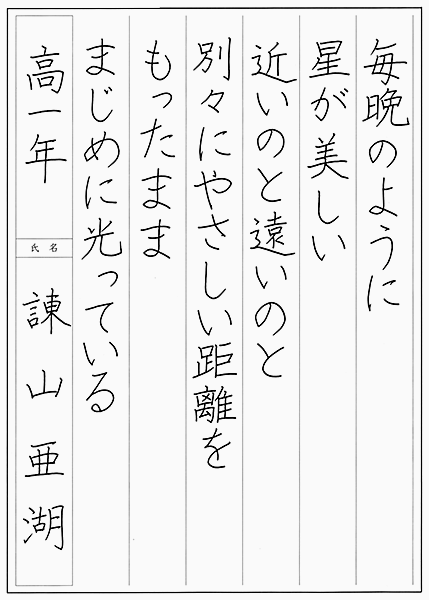 毎晩のように
星が美しい
近いのと遠いのと
別々にやさしい距離を
もったまま
まじめに光っている
高一年
氏名
諌山亜湖